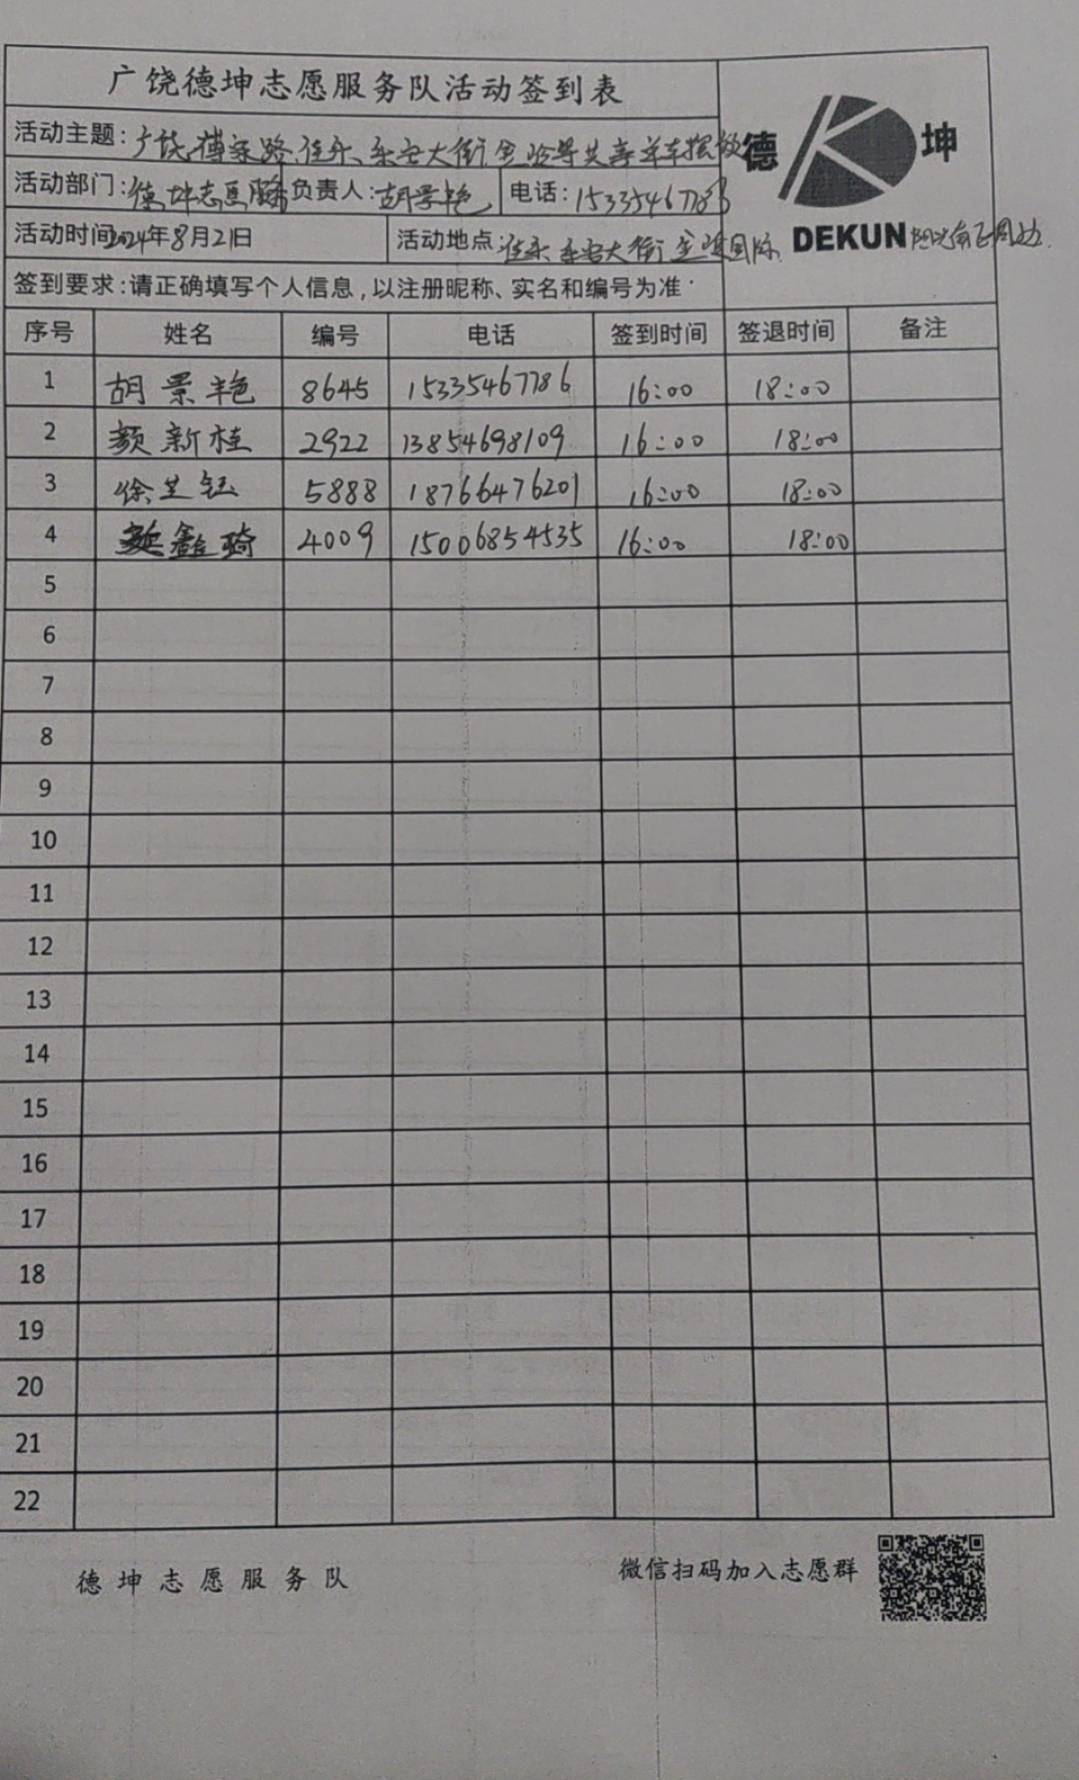 广饶德坤志愿服务队活动签到表
德 坤
DEKUN
活动主题:广饶 路 乐安大街 共享单车摆放
活动部门:德坤志愿服务 负责人:胡景艳 电话:15335467786
活动时间2024年8月21日 活动地点 乐安大街 国际 周边.
签到要求:请正确填写个人信息,以注册昵称、实名和编号为准
序号 姓名 编号 电话 签到时间 签退时间 备注
1 胡景艳 8645 15335467786 16:00 18:00
2 颜新桂 2922 13854698109 16:00 18:00
3 徐芝钰 5888 18766476201 16:00 18:00
4 鑫琦 4009 15006854535 16:00 18:00
5
6
7
8
9
10
11
12
13
14
15
16
17
18
19
20
21
22
德坤志愿服务队
微信扫码加入志愿群